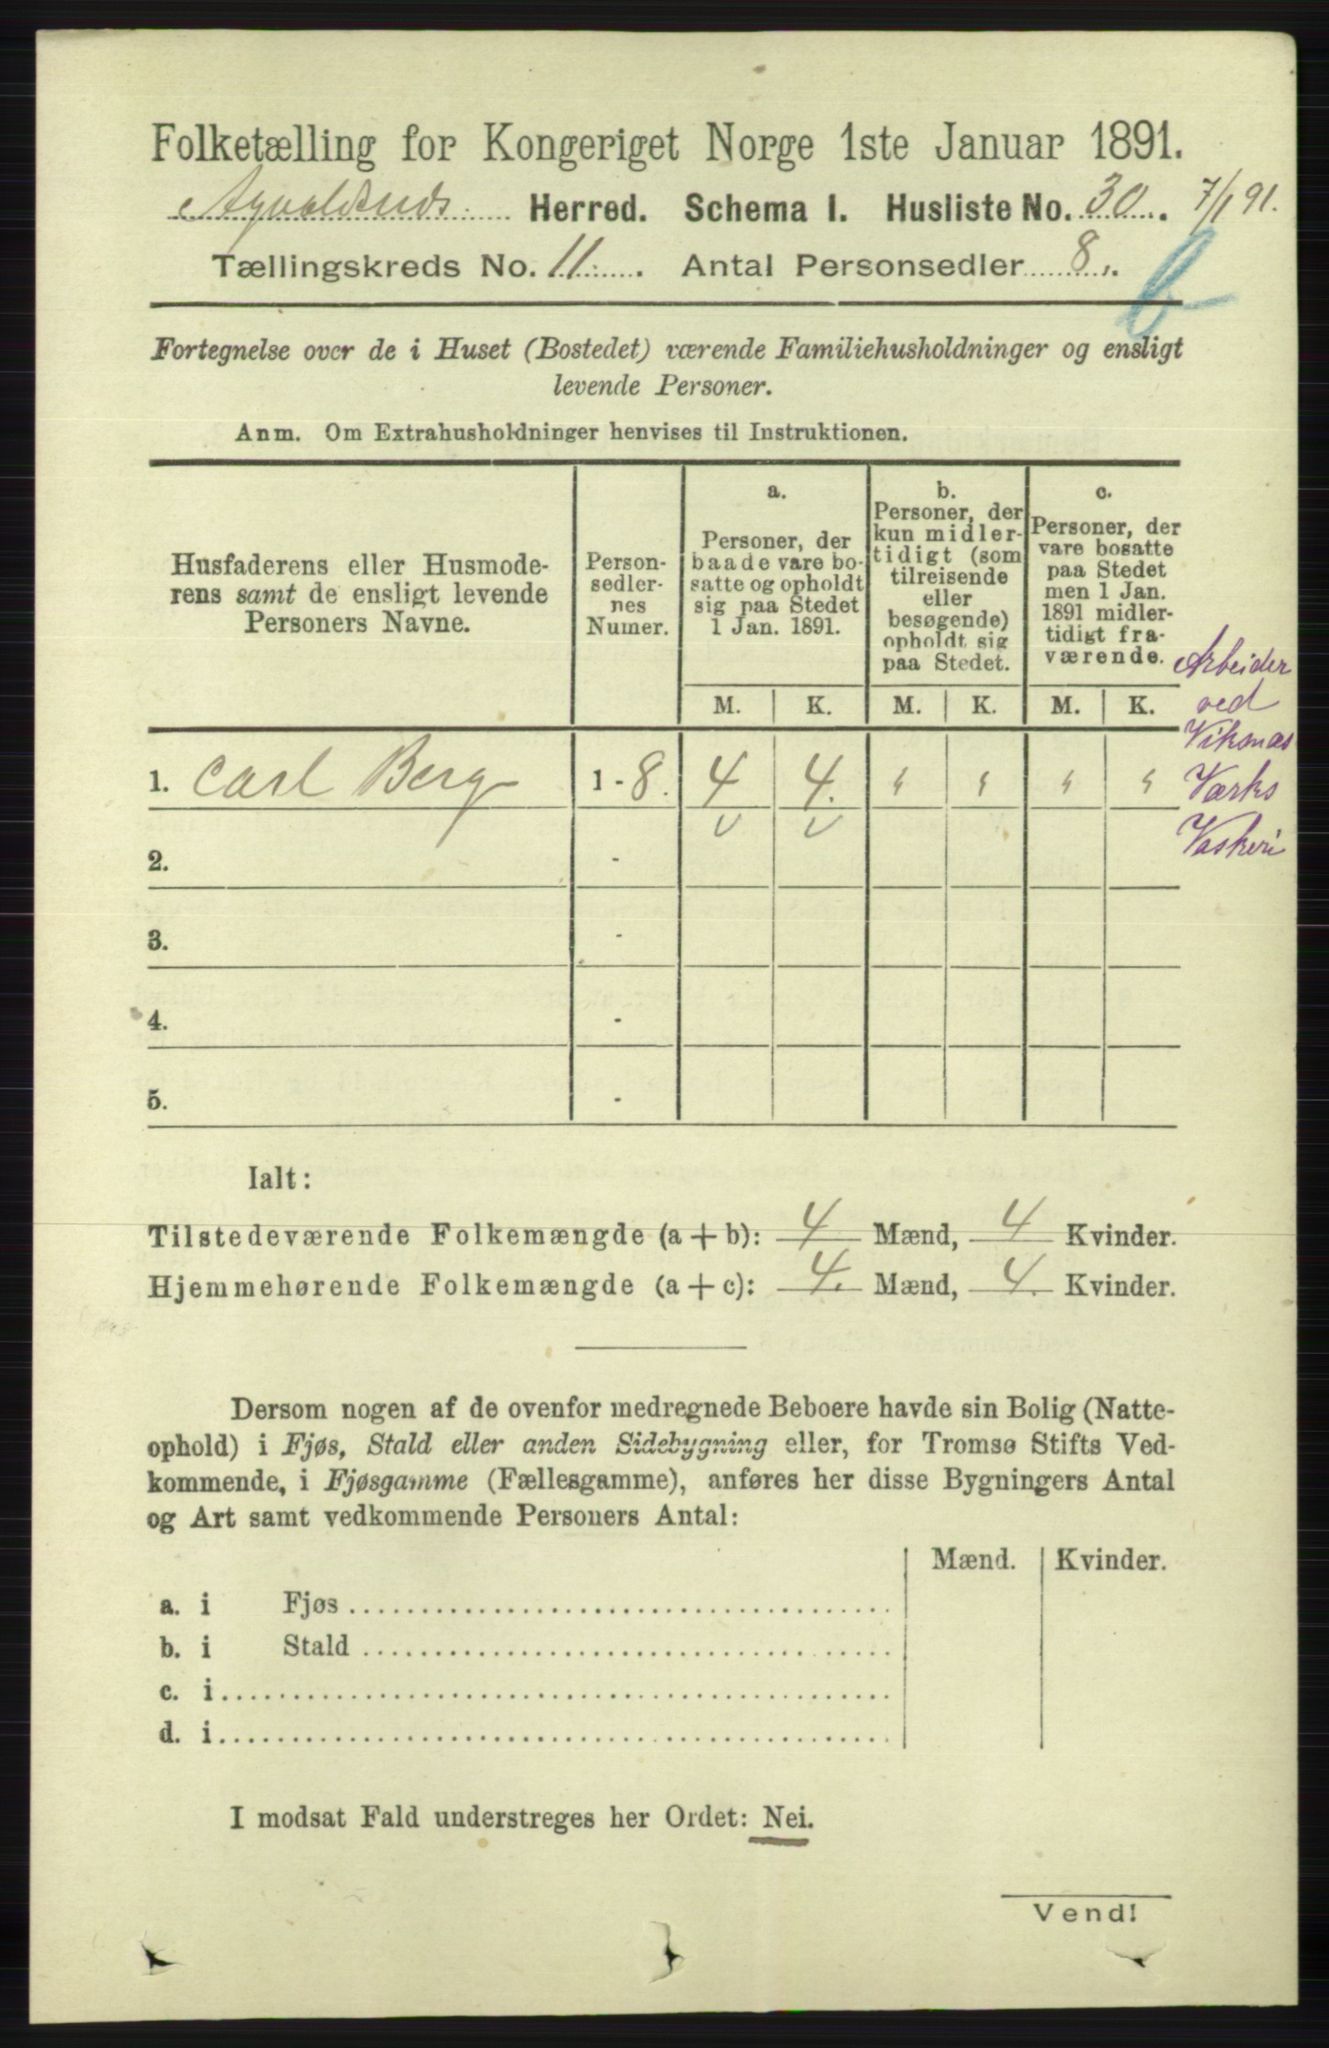 Folketælling for Kongeriget Norge 1ste Januar 1891.
Avaldsnds Herred. Schema I. Husliste No. 30. 7/1 91.
Tællingskreds No. 11. Antal Personsedler 8.
b
Fortegnelse over de i Huset (Bostedet) værende Familiehusholdninger og ensligt
levende Personer.
Anm. Om Extrahusholdninger henvises til Instruktionen.
Husfaderens eller Husmode-
rens samt de ensligt levende
Personers Navne.
Person-
sedler-
nes
Numer.
a.
Personer, der
baade vare bo-
satte og opholdt
sig paa Stedet
1 Jan. 1891.
b.
Personer, der
kun midler-
tidigt (som
tilreisende
eller
besøgende)
opholdt sig
paa Stedet.
c.
Personer, der
vare bosatte
paa Stedet
men 1 Jan.
1891 midler-
tidigt fra-
værende.
M. K. M. K. M. K.
Arbeider
ved
Viksnæs
Værks
Vaskeri
1. Carl Berg 1-8. 4 4. " " " "
2. -
3. -
4. -
5. -
Ialt:
Tilstedeværende Folkemængde (a + b): 4 Mænd, 4 Kvinder.
Hjemmehørende Folkemængde (a + c): 4. Mænd, 4. Kvinder.
Dersom nogen af de ovenfor medregnede Beboere havde sin Bolig (Natte-
ophold) i Fjøs, Stald eller anden Sidebygning eller, for Tromsø Stifts Ved-
kommende, i Fjøsgamme (Fællesgamme), anføres her disse Bygningers Antal
og Art samt vedkommende Personers Antal:
Mænd. Kvinder.
a. i Fjøs
b. i Stald
c. i
d. i
I modsat Fald understreges her Ordet: Nei.
Vend!